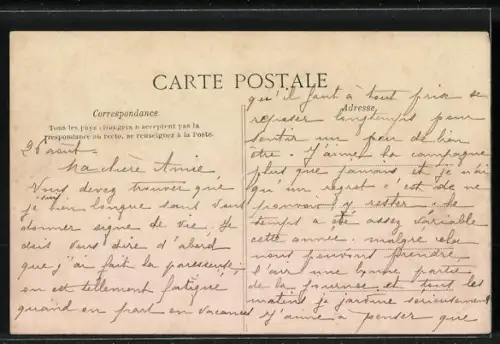 CARTE POSTALE
Correspondance
Tous les pays étrangers n'acceptent pas la
correspondance au recto, se renseigner à la Poste.
Adresse
26 août.
Ma chère Amie,
Vous devez trouver que
je suis bien longue sans vous
donner signe de vie. Je
dois vous dire d'abord
que j'ai fait la paresseuse;
on est tellement fatigué
quand on part en vacances
qu'il faut à tout prix se
reposer longtemps pour
sentir un peu de bien
être. J'aime la campagne
plus que jamais, et je n'ai
qu'un regret: c'est de ne
pouvoir y rester. Le
temps a été assez variable
cette année. malgré cela
nous pouvons prendre
l'air une bonne partie
de la journée et tous les
matins je jardine sérieusement
J'aime à penser que